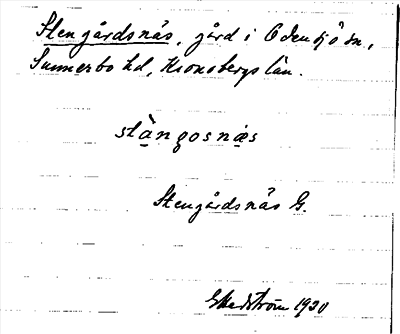 Stengårdsnäs, gård i Odensjö sn,
Sunnerbo hd, Kronobergs län.
stàngosnæs
Stengårdsnäs G.
E Hedström 1930